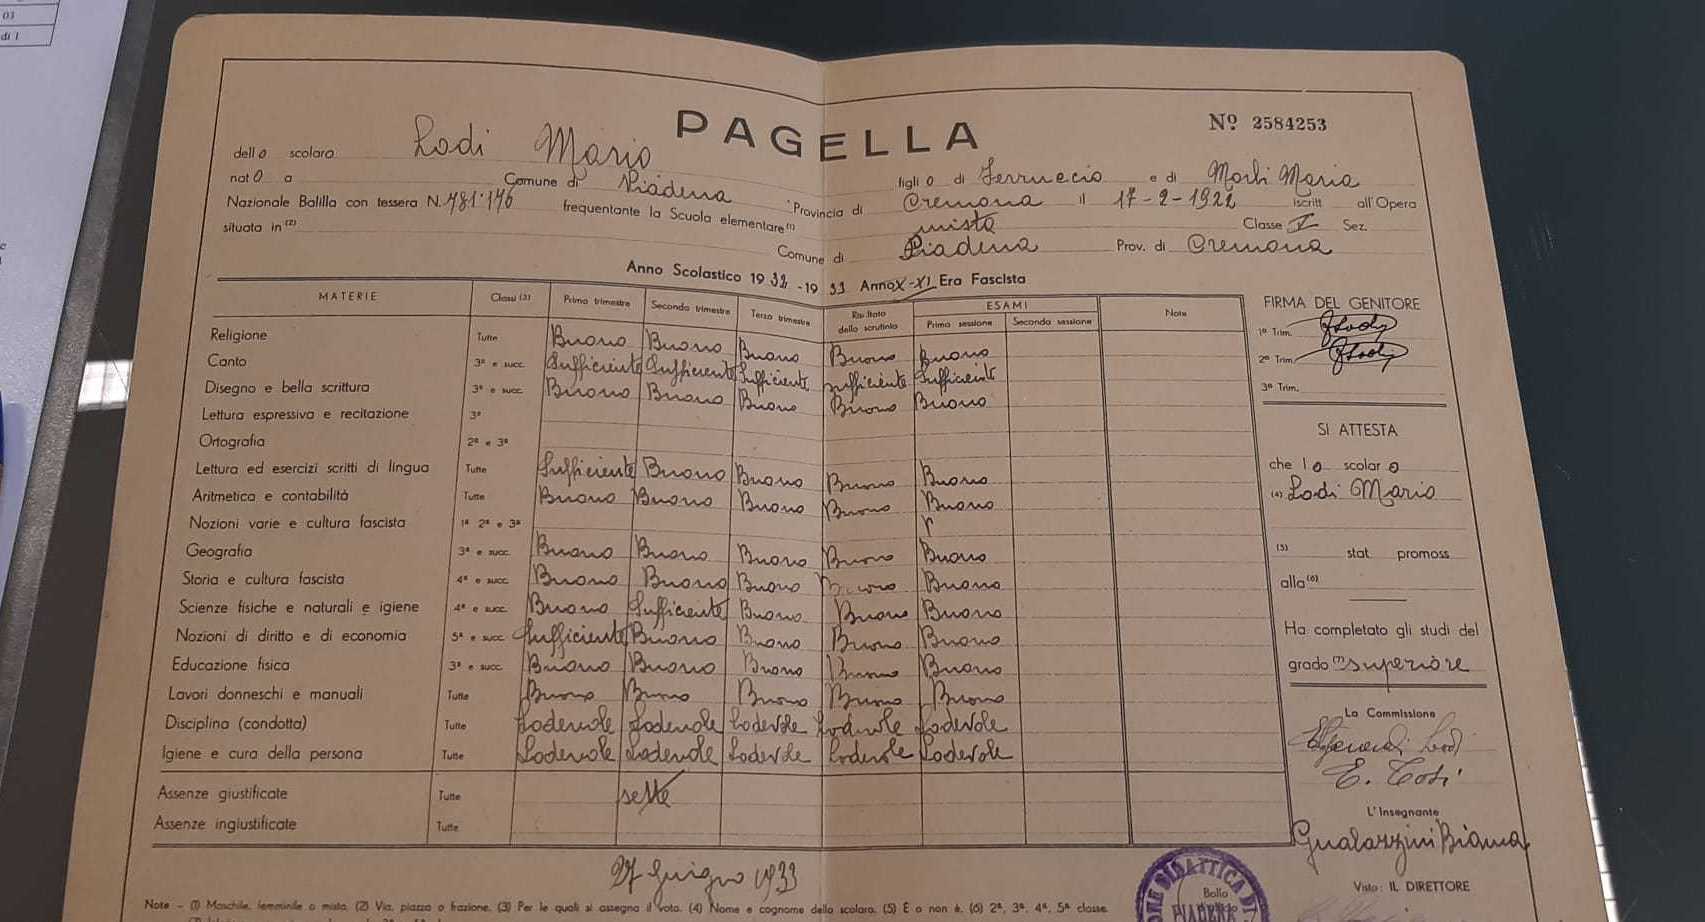 03
di 1
PAGELLA
Nº 2584253
dello scolaro Lodi Mario figlio di Ferruccio e di Morbi Maria
nato a Comune di Piadena Provincia di Cremona il 17-2-1922 iscritt all'Opera
Nazionale Balilla con tessera N. 781.176 frequentante la Scuola elementare (1) mista Classe V Sez.
situata in (2) Comune di Piadena Prov. di Cremona
Anno Scolastico 1932-1933 Anno X-XI Era Fascista
MATERIE Classi (3) Primo trimestre Secondo trimestre Terzo trimestre Risultato dello scrutinio ESAMI Prima sessione Seconda sessione Note
Religione Tutte Buono Buono Buono Buono Buono
Canto 3ª e succ. Sufficiente Sufficiente Sufficiente Sufficiente Sufficiente
Disegno e bella scrittura 3ª e succ. Buono Buono Buono Buono Buono
Lettura espressiva e recitazione 3ª
Ortografia 2ª e 3ª
Lettura ed esercizi scritti di lingua Tutte Sufficiente Buono Buono Buono Buono
Aritmetica e contabilità Tutte Buono Buono Buono Buono Buono
Nozioni varie e cultura fascista 1ª 2ª e 3ª
Geografia 3ª e succ. Buono Buono Buono Buono Buono
Storia e cultura fascista 4ª e succ. Buono Buono Buono Buono Buono
Scienze fisiche e naturali e igiene 4ª e succ. Buono Sufficiente Buono Buono Buono
Nozioni di diritto e di economia 5ª e succ. Sufficiente Buono Buono Buono Buono
Educazione fisica 3ª e succ. Buono Buono Buono Buono Buono
Lavori donneschi e manuali Tutte Buono Buono Buono Buono Buono
Disciplina (condotta) Tutte Lodevole Lodevole Lodevole Lodevole Lodevole
Igiene e cura della persona Tutte Lodevole Lodevole Lodevole Lodevole Lodevole
Assenze giustificate Tutte sette
Assenze ingiustificate Tutte
27 Giugno 1933
FIRMA DEL GENITORE
1º Trim.
2º Trim.
3º Trim.
SI ATTESTA
che lo scolaro
(4) Lodi Mario
(5) stat promoss
alla (6)
Ha completato gli studi del
grado (7) superiore
La Commissione
E. Tosi
L'Insegnante
Gualazzini Bianca
Visto: IL DIRETTORE
DIDATTICA DI
Bollo
PIADENA
Note - (1) Maschile, femminile o mista. (2) Via, piazza o frazione. (3) Per le quali si assegna il voto. (4) Nome e cognome dello scolaro. (5) È o non è. (6) 2ª, 3ª, 4ª, 5ª classe.